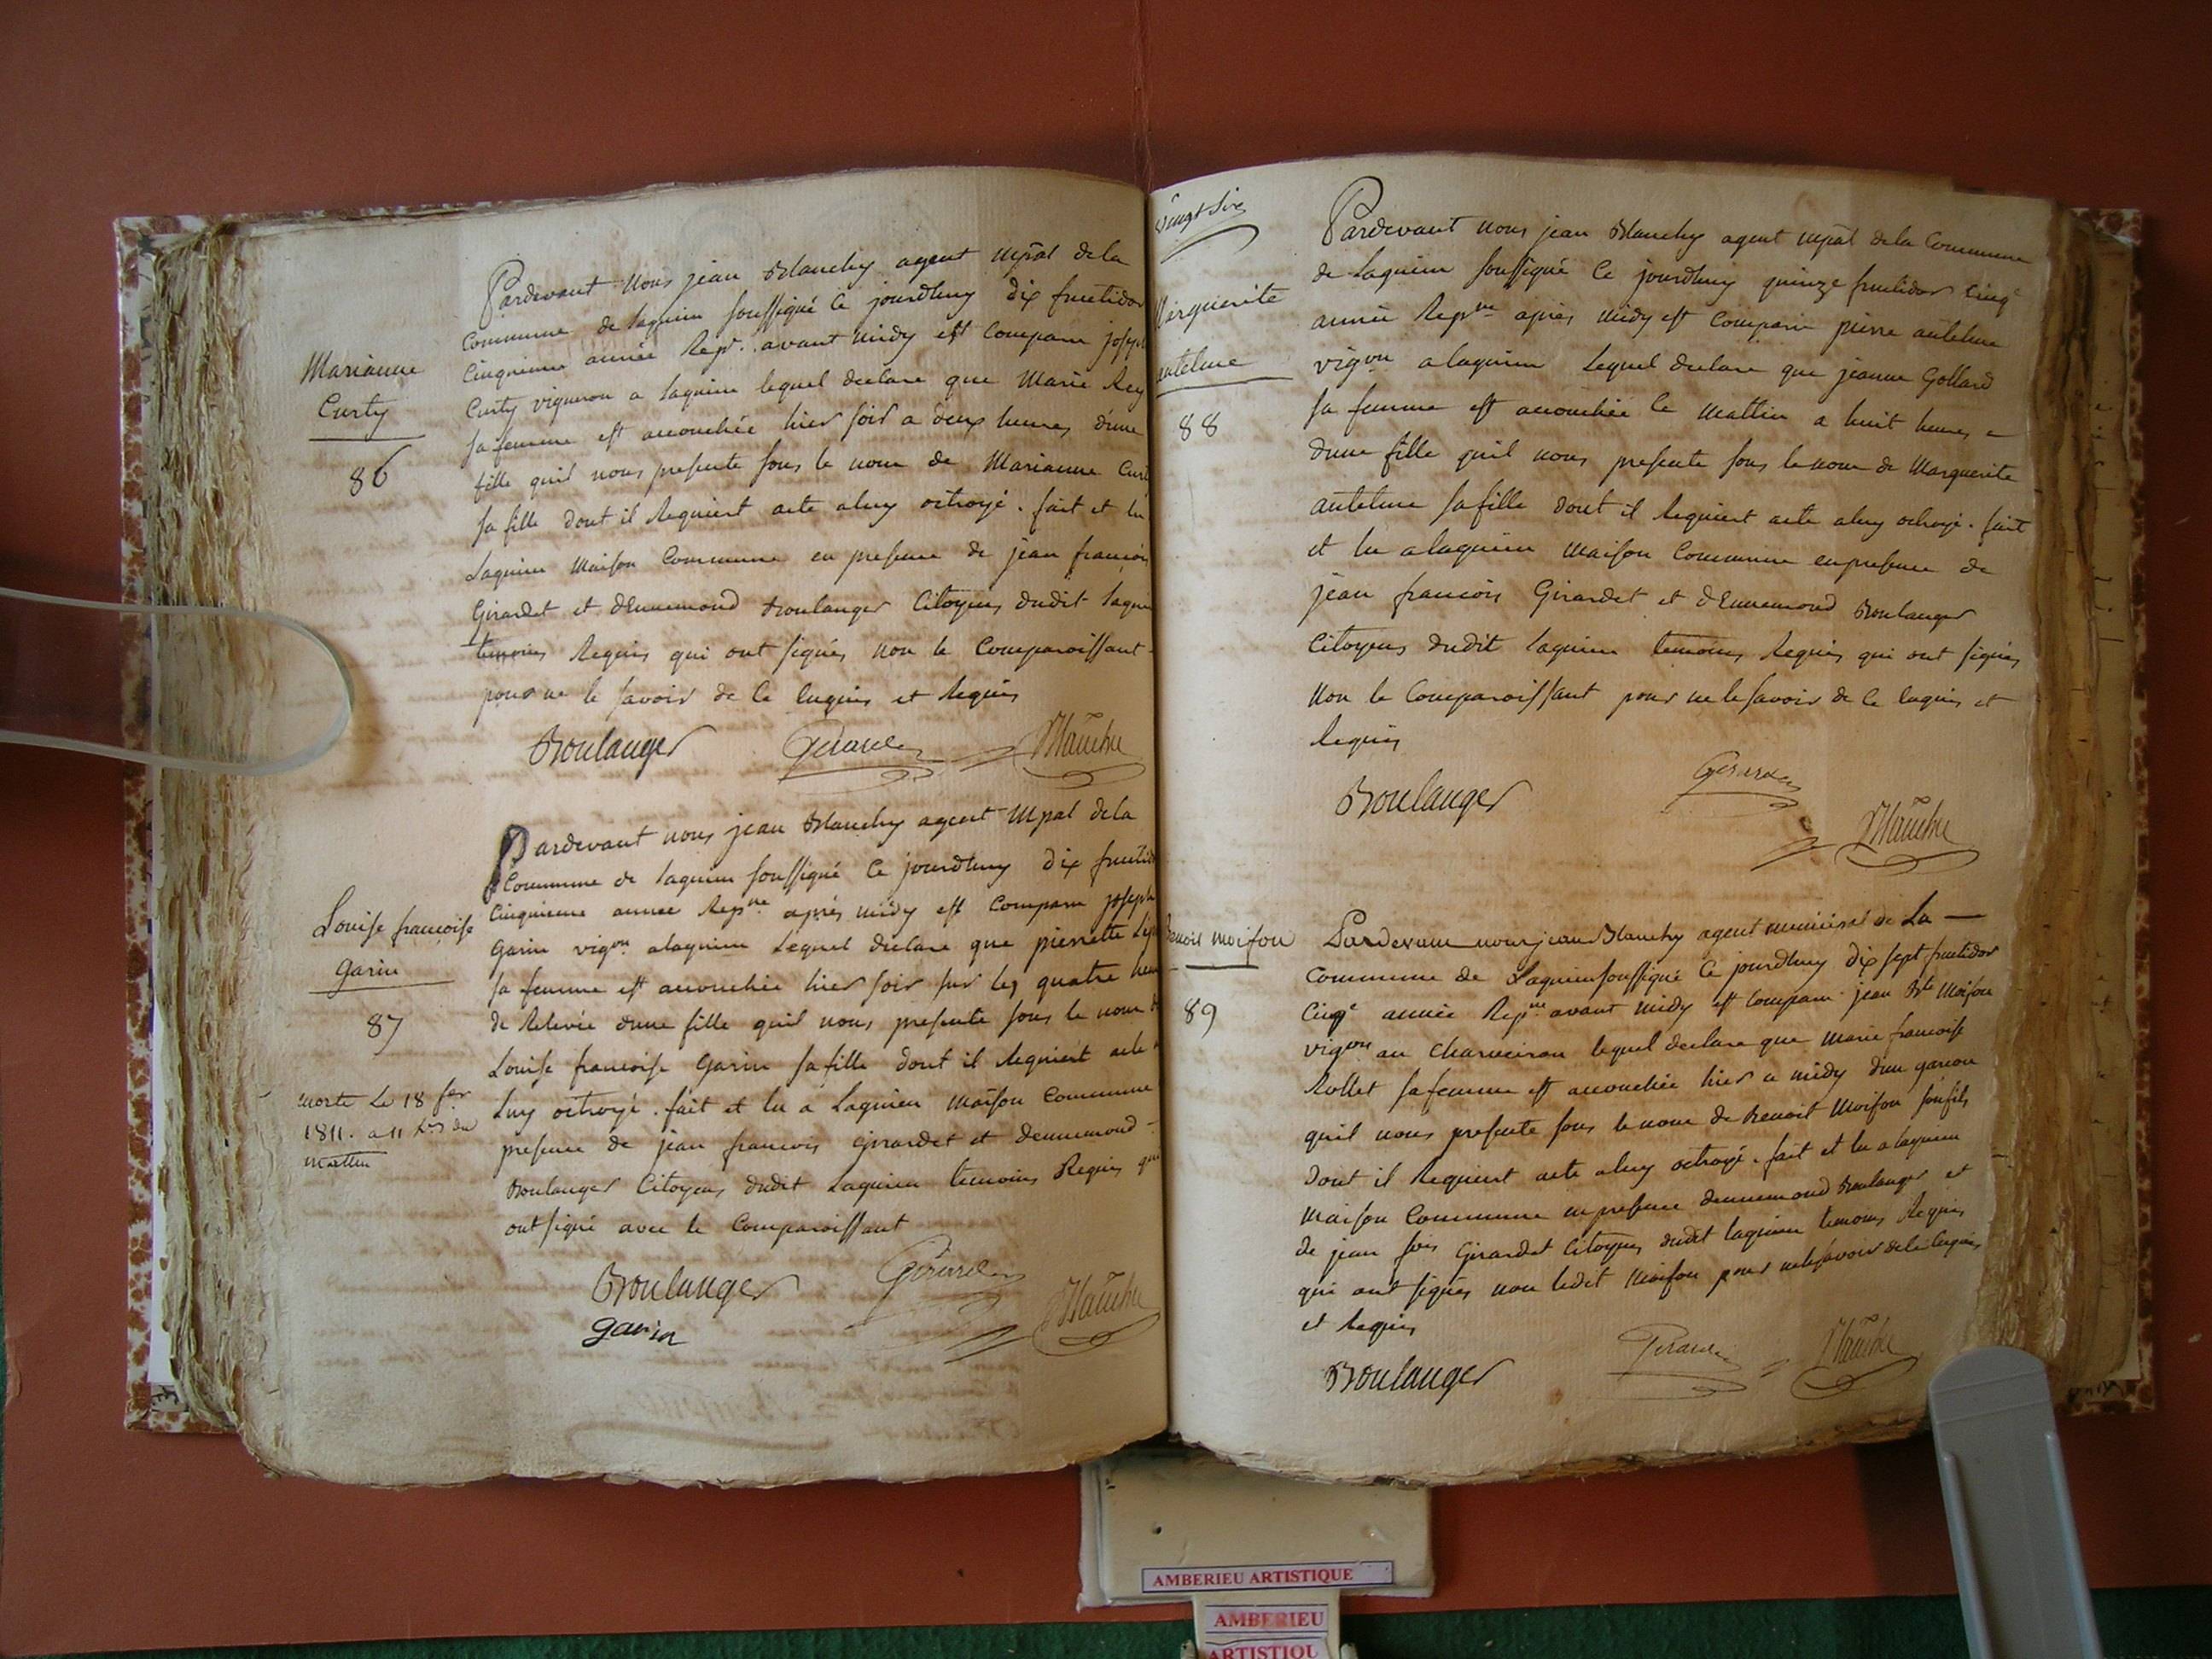 Marianne
Curty
86
Pardevant Nous jean Blanchy agent mpāl dela
Commune de Lagnieu soussigné Ce jourdhuy dix fructidor
Cinquieme année Rep.e avant midy est Comparu joseph
Curty vigneron a Lagnieu lequel declare que Marie Rey
sa femme est accouchée hier soir a deux heures d'une
fille quil nous presente sous le nom de Marianne Curt
sa fille dont il Requiert acte aluy octroyé. fait et lu
Lagnieu Maison Commune en presence de jean françois
Girardet et dEnnemond Boulanger Citoyens dudit Lagni
temoins Requis qui ont signés non le Comparoissant
pour ne le savoir de Ce Enquis et Requis
Boulanger Girardet Blanchy
Louise françoise
Garin
87
morte Le 18 fer
1811. a 11 hres du
mattin
Pardevant nous jean Blanchy agent Mpal dela
Commune de Lagnieu soussigné Ce jourdhuy dix fructid
Cinquieme annee Repne après midy est Comparu joseph
Garin vigon alagnieu Lequel declare que pierrette
sa femme est accouchée hier soir sur les quatre heu
de Relevée dune fille quil nous presente sous le nom d
Louise francoise Garin sa fille dont il Requiert acte
Luy octroyé. fait et lu a Lagnieu Maison Commune
presence de jean francois Girardet et dennemond
Boulanger Citoyens dudit Lagnieu temoins Requis qui
ont signé avec le Comparoissant
Boulanger Girardet
garin Blanchy
Vingt Six
Marguerite
anteleme
88
Pardevant nous jean Blanchy agent mpāl dela Commune
de Lagnieu soussigné Ce jourdhuy quinze fructidor Cinqe
année Repne après midy est Comparu pierre anteleme
vigon alagnieu Lequel declare que jeanne Gollard
sa femme est accouchée Ce Mattin a huit heures
dune fille quil nous presente sous le nom de Marguerite
anteleme sa fille dont il Requiert acte aluy octroyé. fait
et lu alagnieu Maison Commune enpresence de
jean francois Girardet et dEnnemond Boulanger
Citoyens dudit Lagnieu temoins Requis qui ont signés
Non le Comparoissant pour ne le savoir de Ce Enquis et
Requis
Boulanger Girardet
Blanchy
Benoit moison
89
Pardevant nous jean Blanchy agent municipal de La
Commune de Lagnieu soussigné Ce jourdhuy dix sept fructidor
Cinqe année Repne avant midy est Comparu jean Bte Moison
vigon au Charveiron lequel declare que Marie francoise
Rollet sa femme est accouchée hier a midy d'un garcon
quil nous presente sous le nom de Benoit Moison son fils
Dont il Requiert acte aluy octroyé. fait et lu a lagnieu
Maison Commune en presence dennemond Boulanger et
de jean fois Girardet Citoyens dudit lagnieu temoins Requis
qui ont signés non ledit Moison pour ne le savoir de Ce Enquis
et Requis
Boulanger Girardet Blanchy
AMBERIEU ARTISTIQUE
AMBERIEU
ARTISTIQU